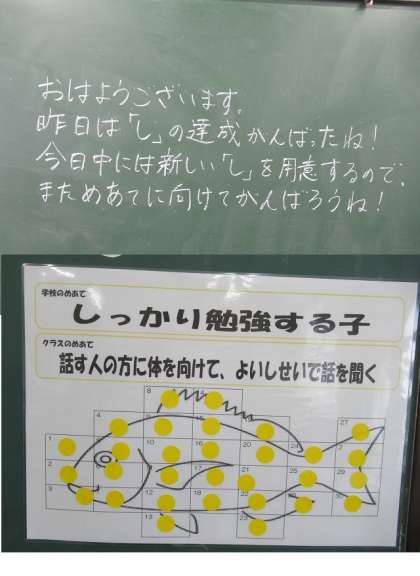 おはようございます。
昨日は「し」の達成がんばったね！
今日中には新しい「し」を用意するので、
まためあてに向けてがんばろうね！
学校のめあて
しっかり勉強する子
クラスのめあて
話す人の方に体を向けて、よいしせいで話を聞く
8
4
27
1
10
16
24
2
17
21
28
29
3
12
18
22
30
13
23